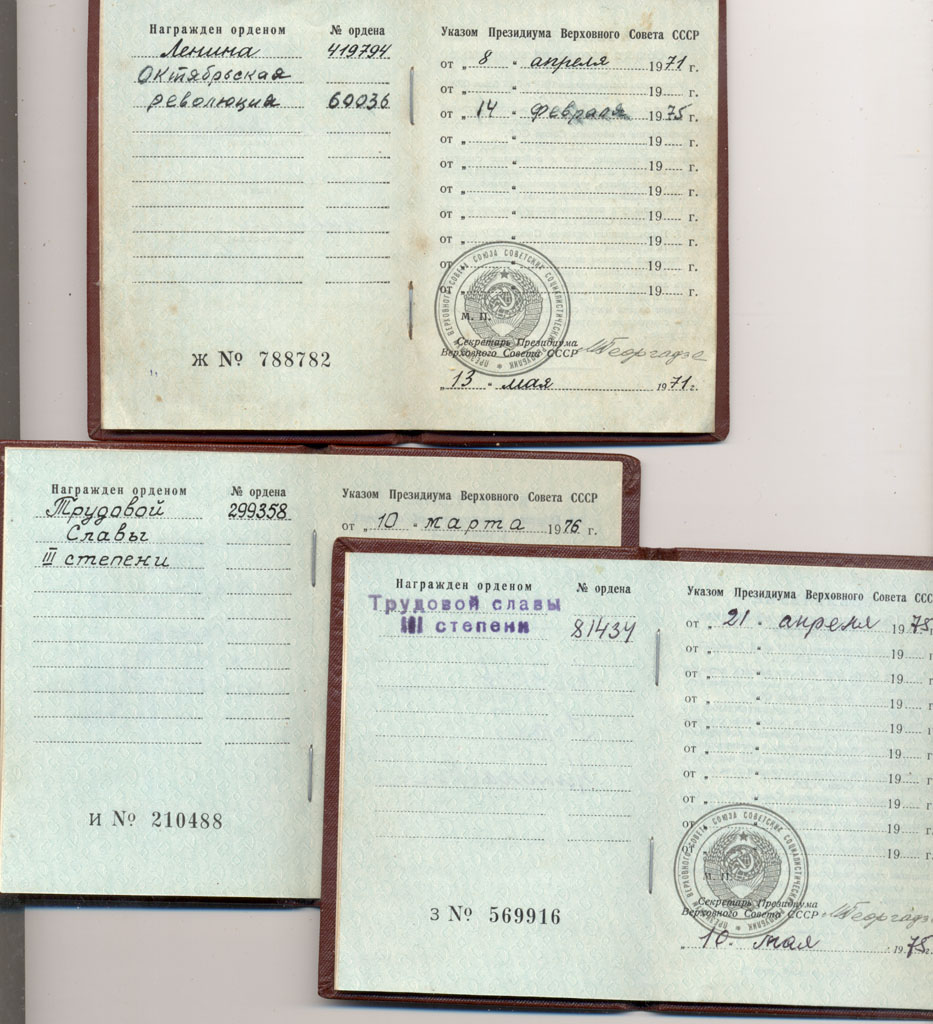 Награжден орденом № ордена
Ленина 419794
Октябрьская
революция 60036
Ж № 788782
Указом Президиума Верховного Совета СССР
от „ 8 “ апреля 1971 г.
от „ “ 19 г.
от „ 14 “ февраля 1975 г.
от „ “ 19 г.
от „ “ 19 г.
от „ “ 19 г.
от „ “ 19 г.
от „ “ 19 г.
от „ “ 19 г.
от „ “ 19 г.
ПРЕЗИДИУМ ВЕРХОВНОГО СОВЕТА СОЮЗА СОВЕТСКИХ СОЦИАЛИСТИЧЕСКИХ РЕСПУБЛИК
М. П.
Секретарь Президиума
Верховного Совета СССР МГеоргадзе
„ 13 “ мая 1971 г.
Награжден орденом № ордена
Трудовой 299358
Славы
III степени
И № 210488
Указом Президиума Верховного Совета СССР
от „ 10 “ марта 1976 г.
Награжден орденом № ордена
Трудовой славы
III степени 81434
З № 569916
Указом Президиума Верховного Совета ССС
от „ 21 “ апреля 1975
от „ “ 19 г.
от „ “ 19 г.
от „ “ 19 г.
от „ “ 19 г.
от „ “ 19 г.
от „ “ 19 г.
от „ “ 19 г.
от „ “ 19 г.
от „ “ 19 г.
ПРЕЗИДИУМ ВЕРХОВНОГО СОВЕТА СОЮЗА СОВЕТСКИХ СОЦИАЛИСТИЧЕСКИХ РЕСПУБЛИК
М. П.
Секретарь Президиума
Верховного Совета СССР МГеоргадзе
„ 10 “ мая 1975 г.